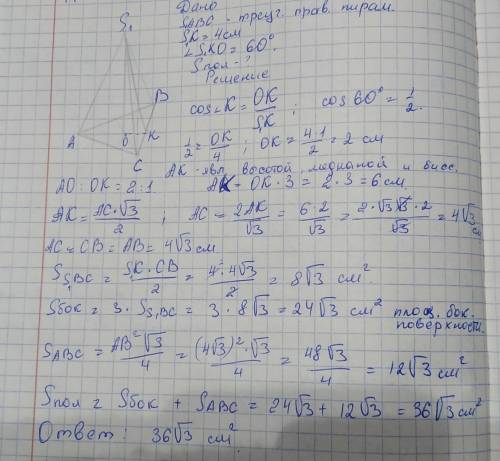 Дано
SABC - треуг. прав. пирам.
S₁K = 4см
∠S₁KO = 60°
Sпол - ?
Решение
S₁
B
A
O
K
C
cos∠K = OK/S₁K ; cos 60° = 1/2.
1/2 = OK/4 ; OK = 4·1/2 = 2 см
AK - явл. высотой, медианой и бисс.
AO : OK = 2 : 1 AK = OK · 3 = 2 · 3 = 6 см.
AK = AC·√3/2 ; AC = 2AK/√3 = 6·2/√3 = 2·√3·√3·2/√3 = 4√3 см
AC = CB = AB = 4√3 см
S S₁BC = SK·CB/2 = 4·4√3/2 = 8√3 см².
Sбок = 3 · S S₁BC = 3 · 8√3 = 24√3 см² площ. бок. поверхности.
SABC = AB²√3/4 = (4√3)²·√3/4 = 48√3/4 = 12√3 см²
Sпол = Sбок + SABC = 24√3 + 12√3 = 36√3 см²
Ответ: 36√3 см².